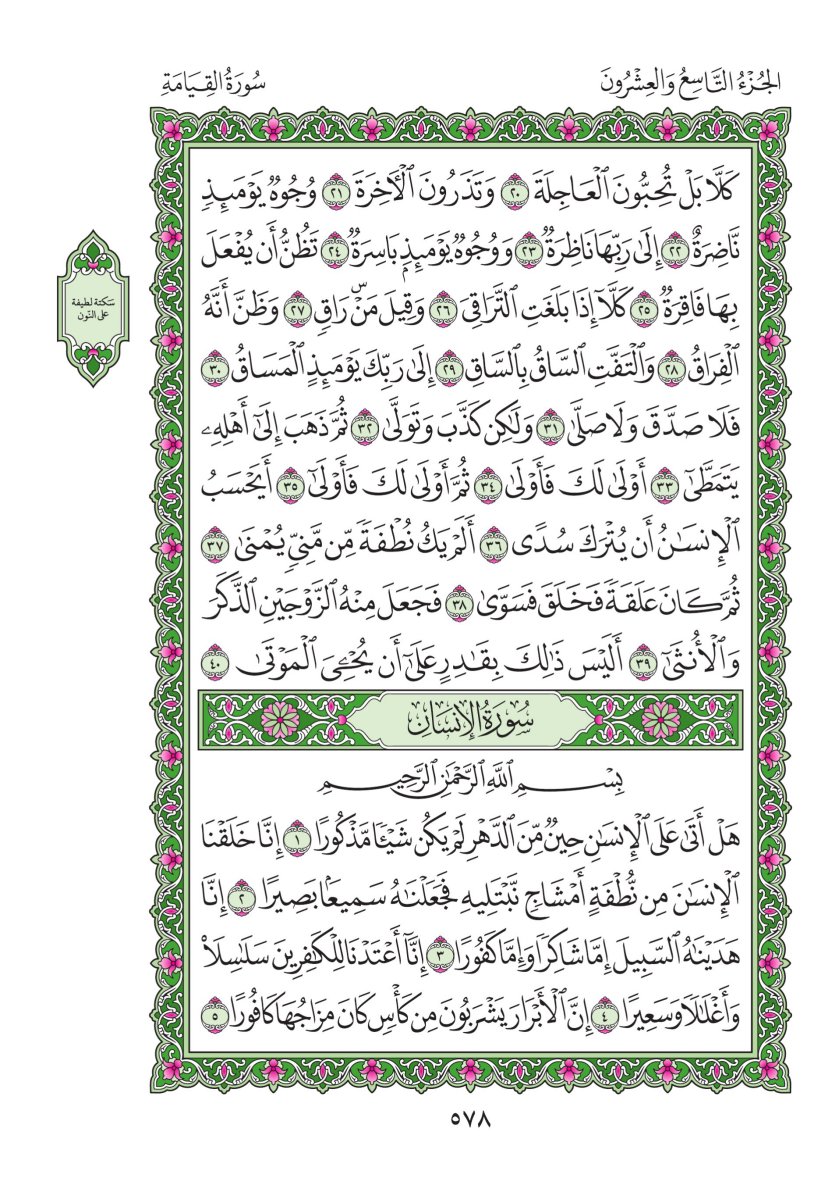 الجُزْءُ التَّاسِعُ وَالعِشْرُونَ
سُورَةُ القِيَامَةِ
كَلَّا بَلْ تُحِبُّونَ ٱلْعَاجِلَةَ ٢٠ وَتَذَرُونَ ٱلْأَخِرَةَ ٢١ وُجُوهٌ يَوْمَئِذٍ
نَّاضِرَةٌ ٢٢ إِلَىٰ رَبِّهَا نَاظِرَةٌ ٢٣ وَوُجُوهٌ يَوْمَئِذٍۭ بَاسِرَةٌ ٢٤ تَظُنُّ أَن يُفْعَلَ
بِهَا فَاقِرَةٌ ٢٥ كَلَّآ إِذَا بَلَغَتِ ٱلتَّرَاقِىَ ٢٦ وَقِيلَ مَنْۜ رَاقٍ ٢٧ وَظَنَّ أَنَّهُ
ٱلْفِرَاقُ ٢٨ وَٱلْتَفَّتِ ٱلسَّاقُ بِٱلسَّاقِ ٢٩ إِلَىٰ رَبِّكَ يَوْمَئِذٍ ٱلْمَسَاقُ ٣٠
فَلَا صَدَّقَ وَلَا صَلَّىٰ ٣١ وَلَٰكِن كَذَّبَ وَتَوَلَّىٰ ٣٢ ثُمَّ ذَهَبَ إِلَىٰٓ أَهْلِهِۦ
يَتَمَطَّىٰٓ ٣٣ أَوْلَىٰ لَكَ فَأَوْلَىٰ ٣٤ ثُمَّ أَوْلَىٰ لَكَ فَأَوْلَىٰٓ ٣٥ أَيَحْسَبُ
ٱلْإِنسَٰنُ أَن يُتْرَكَ سُدًى ٣٦ أَلَمْ يَكُ نُطْفَةً مِّن مَّنِىٍّ يُمْنَىٰ ٣٧
ثُمَّ كَانَ عَلَقَةً فَخَلَقَ فَسَوَّىٰ ٣٨ فَجَعَلَ مِنْهُ ٱلزَّوْجَيْنِ ٱلذَّكَرَ
وَٱلْأُنثَىٰٓ ٣٩ أَلَيْسَ ذَٰلِكَ بِقَٰدِرٍ عَلَىٰٓ أَن يُحْۦِىَ ٱلْمَوْتَىٰ ٤٠
سُورَةُ الإِنسَانِ
بِسْمِ ٱللَّهِ ٱلرَّحْمَٰنِ ٱلرَّحِيمِ
هَلْ أَتَىٰ عَلَى ٱلْإِنسَٰنِ حِينٌ مِّنَ ٱلدَّهْرِ لَمْ يَكُن شَيْـًٔا مَّذْكُورًا ١ إِنَّا خَلَقْنَا
ٱلْإِنسَٰنَ مِن نُّطْفَةٍ أَمْشَاجٍ نَّبْتَلِيهِ فَجَعَلْنَٰهُ سَمِيعًۢا بَصِيرًا ٢ إِنَّا
هَدَيْنَٰهُ ٱلسَّبِيلَ إِمَّا شَاكِرًا وَإِمَّا كَفُورًا ٣ إِنَّآ أَعْتَدْنَا لِلْكَٰفِرِينَ سَلَٰسِلَا۠
وَأَغْلَٰلًا وَسَعِيرًا ٤ إِنَّ ٱلْأَبْرَارَ يَشْرَبُونَ مِن كَأْسٍ كَانَ مِزَاجُهَا كَافُورًا ٥
سَكتة لطيفة
على النّون
٥٧٨